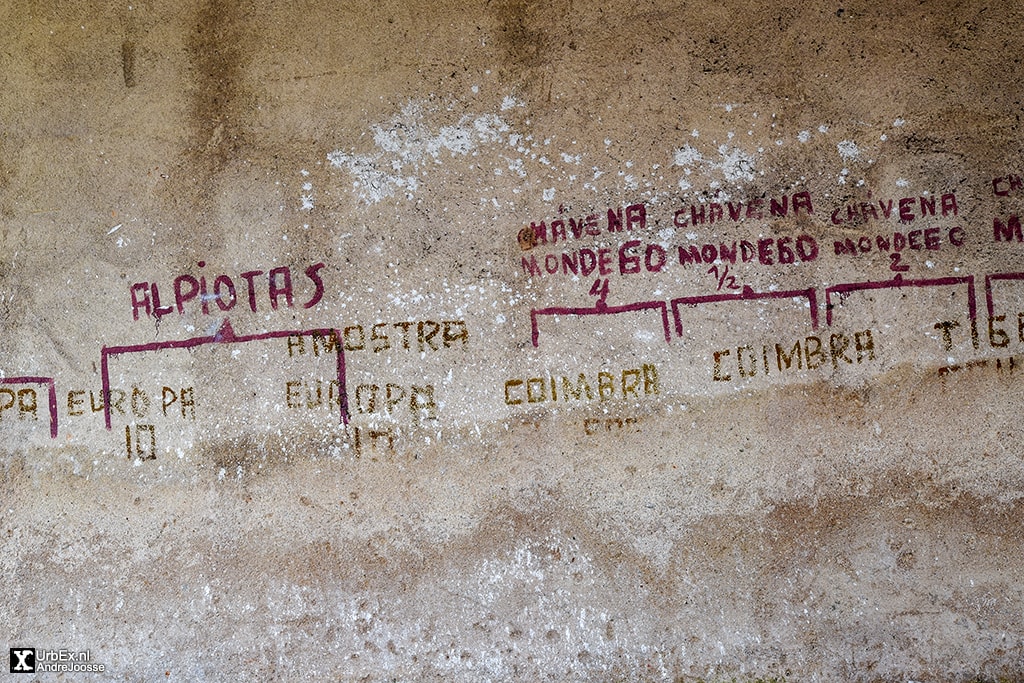 ALPIOTAS
CHÁVENA
MONDEGO
4
CHÁVENA
MONDEGO
1/2
CHÁVENA
MONDEGO
2
CH
M
PA
EUROPA
10
AMOSTRA
EUROPA
10
COIMBRA
COIMBRA
UrbEx.nl
AndreJoosse